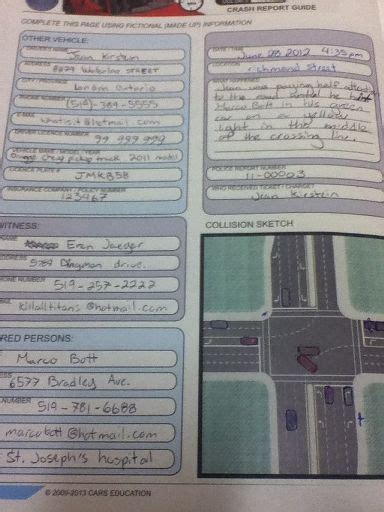 CRASH REPORT GUIDE
COMPLETE THIS PAGE USING FICTIONAL (MADE UP) INFORMATION
OTHER VEHICLE:
Jean Kirstein
ADDRESS
STREET
London Ontario
(519)-389-5555
E-MAIL
whatisit@hotmail.com
DRIVER LICENCE NUMBER
99 999 999
VEHICLE MAKE / MODEL / YEAR
Orange chevy pickup truck 2011 model
LICENCE PLATE #
JMK858
INSURANCE COMPANY / POLICY NUMBER
123467
DATE / TIME
June 28 2012 4:35pm
LOCATION
richmond Street
Jean was paying half attention
to the road when he hit
Marco Bott in his green
car on a yellow
light in the middle
of the crossing line.
POLICE REPORT NUMBER
11-00003
WHO RECEIVED TICKET / CHARGE?
Jean Kirstein
WITNESS:
NAME
Eren Jaeger
ADDRESS
5789 Dingman drive.
PHONE NUMBER
519-257-2222
killalltitans@hotmail.com
COLLISION SKETCH
RED PERSONS:
Marco Bott
6577 Bradley Ave.
NUMBER
519-781-6688
marcobott@hotmail.com
St. Joseph's hospital
© 2009-2013 CARS EDUCATION